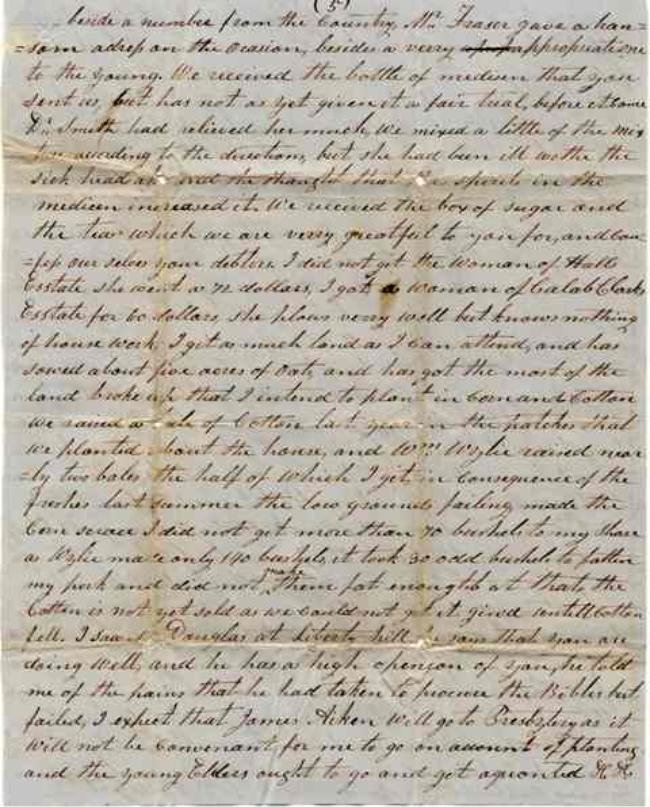 (5)
beside a number from the Country, Mr. Fraser gave a han=
=som adress on the ocasion, besides a verry appropriate one
to the young. We received the bottle of medisen that you
sent us, but has not as yet given it a fair trial, before it came
Dr. Smith had relieved her much, we mixed a little of the mix
according to the direction, but she had been ill withe the
sick head and she thought that the spirits in the
medicen increased it. We received the box of sugar and
the tea which we are verry greatful to you for, and con
=fess our selves your debters. I did not get the woman of Halls
Esstate she went a 72 dollars, I got a woman of Calab Clarks
Esstate for 60 dollars, she plows verry well but knows nothing
of house work, I got as much land as I can attend, and has
sowed about five acres of Oats, and has got the most of the
land broke up that I intend to plant in Corn and Cotton
we raised a bale of Cotton last year in the patches that
we planted about the house, and Wm. Wylie raised near
=ly two bales the half of which I get, in consequence of the
freshes last summer the low grounds failing made the
Corn scrace I did not get more than 70 bushels to my share
as Wylie made only 140 bushels, it took 30 odd bushels to fatten
my pork and did not make them fat enough at that, the
Cotton is not yet sold as we could not get it gined untill Cotton
fell. I saw Douglas at liberty hill he says that you are
doing well, and he has a high openion of you, he told
me of the pains that he had taken to procure the Bibles but
failed, I expect that James Aiken will go to Presbytery as it
will not be convenant for me to go on account of planting
and the young Elders ought to go and get aquonted